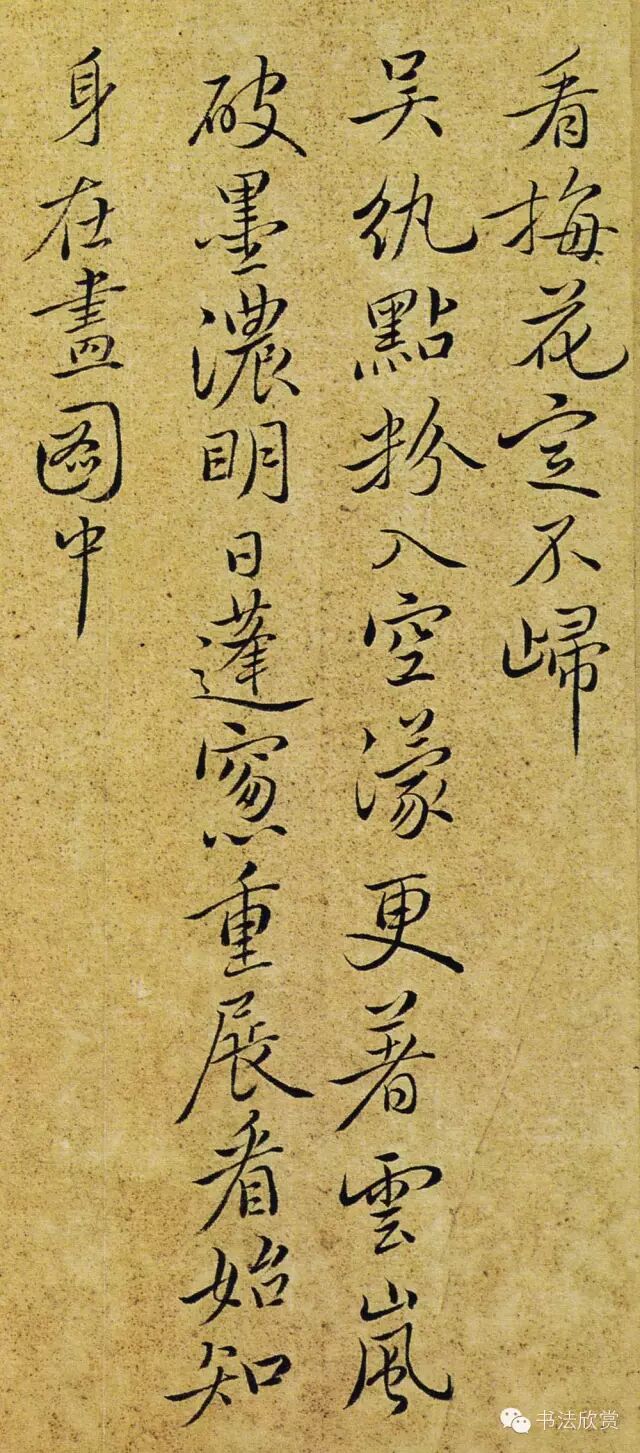 看梅花定不歸
吴紈點粉入空濛更著雲嵐
破墨濃明日蓬窻重展看始知
身在畫圖中
书法欣赏